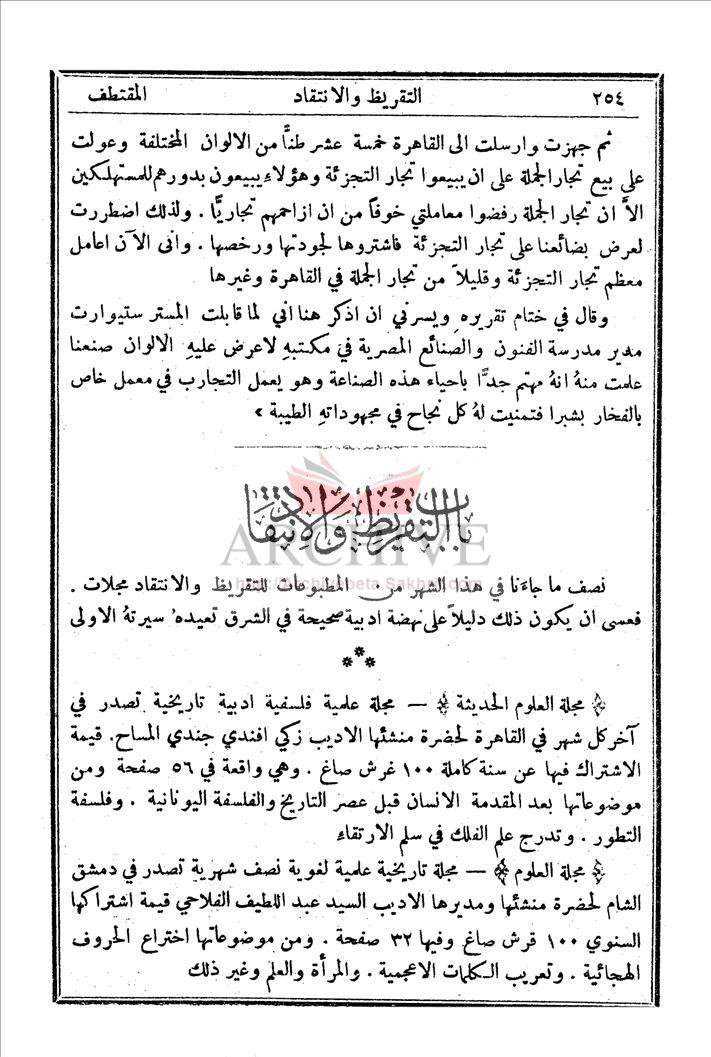 ٢٥٤ التقريظ والانتقاد المقتطف
ثم جهزت وارسلت الى القاهرة خمسة عشر طنًّا من الالوان المختلفة وعولت
على بيع تجار الجملة على ان يبيعوا تجار التجزئة وهؤلاء يبيعون بدورهم للمستهلكين
الاَّ ان تجار الجملة رفضوا معاملتي خوفاً من ان ازاحمهم تجاريًّا . ولذلك اضطررت
لعرض بضائعنا على تجار التجزئة فاشتروها لجودتها ورخصها . وانى الآن اعامل
معظم تجار التجزئة وقليلاً من تجار الجملة في القاهرة وغيرها
وقال في ختام تقريره ِ ويسرني ان اذكر هنا اني لما قابلت المستر ستيوارت
مدير مدرسة الفنون والصنائع المصرية في مكتبهِ لاعرض عليهِ الالوان صنعنا
علمت منهُ انهُ مهتم جدًّا باحياء هذه الصناعة وهو يعمل التجارب في معمل خاص
بالفخار بشبرا فتمنيت لهُ كل نجاح في مجهوداتهِ الطيبة »
باب التقريظ والانتقاد
ARCHIVE
http://Archivebeta.Sakhrit.com
نصف ما جاءَنا في هذا الشهر من المطبوعات للتقريظ والانتقاد مجلات .
فعسى ان يكون ذلك دليلاً على نهضة ادبية صحيحة في الشرق تعيده ُ سيرتهُ الاولى
***
﴿ مجلة العلوم الحديثة ﴾ — مجلة علمية فلسفية ادبية تاريخية تصدر في
آخر كل شهر في القاهرة لحضرة منشئها الاديب زكي افندي جندي المساح. قيمة
الاشتراك فيها عن سنة كاملة ١٠٠ غرش صاغ . وهي واقعة في ٥٦ صفحة ومن
موضوعاتها بعد المقدمة الانسان قبل عصر التاريخ والفلسفة اليونانية . وفلسفة
التطور . وتدرج علم الفلك في سلم الارتقاءِ
﴿ مجلة العلوم ﴾ — مجلة تاريخية علمية لغوية نصف شهرية تصدر في دمشق
الشام لحضرة منشئها ومديرها الاديب السيد عبد اللطيف الفلاحي قيمة اشتراكها
السنوي ١٠٠ قرش صاغ وفيها ٣٢ صفحة . ومن موضوعاتها اختراع الحروف
الهجائية . وتعريب الكلمات الاعجمية . والمرأة والعلم وغير ذلك